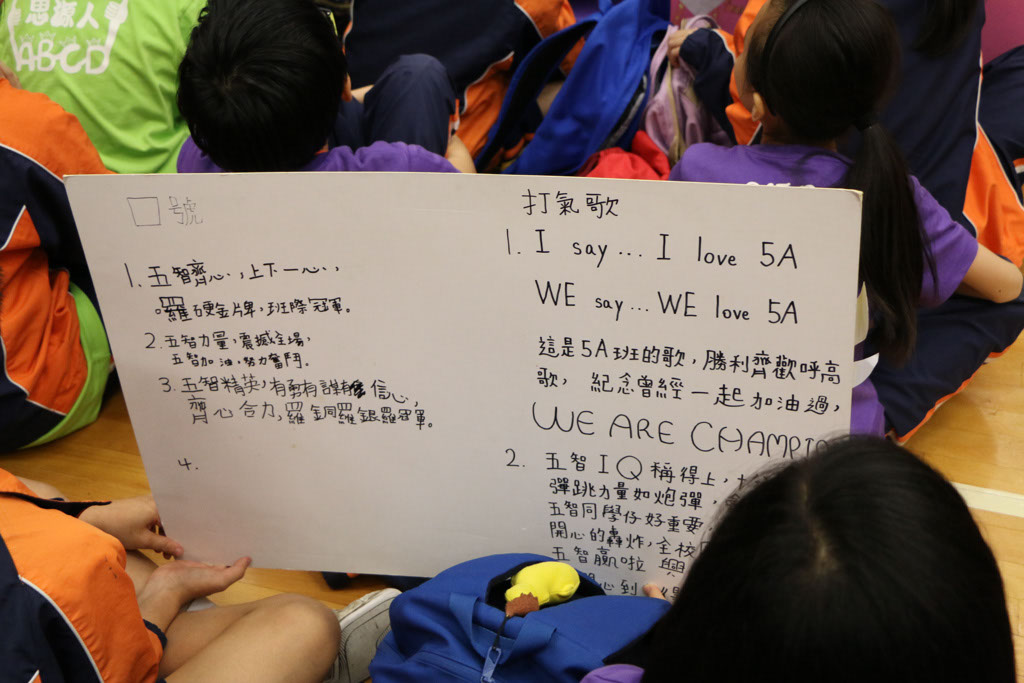 思源人
ABCD
口號
1. 五智齊心,上下一心,
囉硬金牌,班際冠軍。
2. 五智力量,震撼全場,
五智加油,努力奮鬥。
3. 五智精英,有勇有謀有信心,
齊心合力,羅金銅羅銀羅冠軍。
4.
打氣歌
1. I say... I love 5A
WE say... WE love 5A
這是5A班的歌,勝利齊歡呼高
歌,紀念曾經一起加油過,
WE ARE CHAMPIO
2. 五智IQ稱得上,
彈跳力量如炮彈,
五智同學仔好重要
開心的轟炸,全校
五智贏啦 興
心到